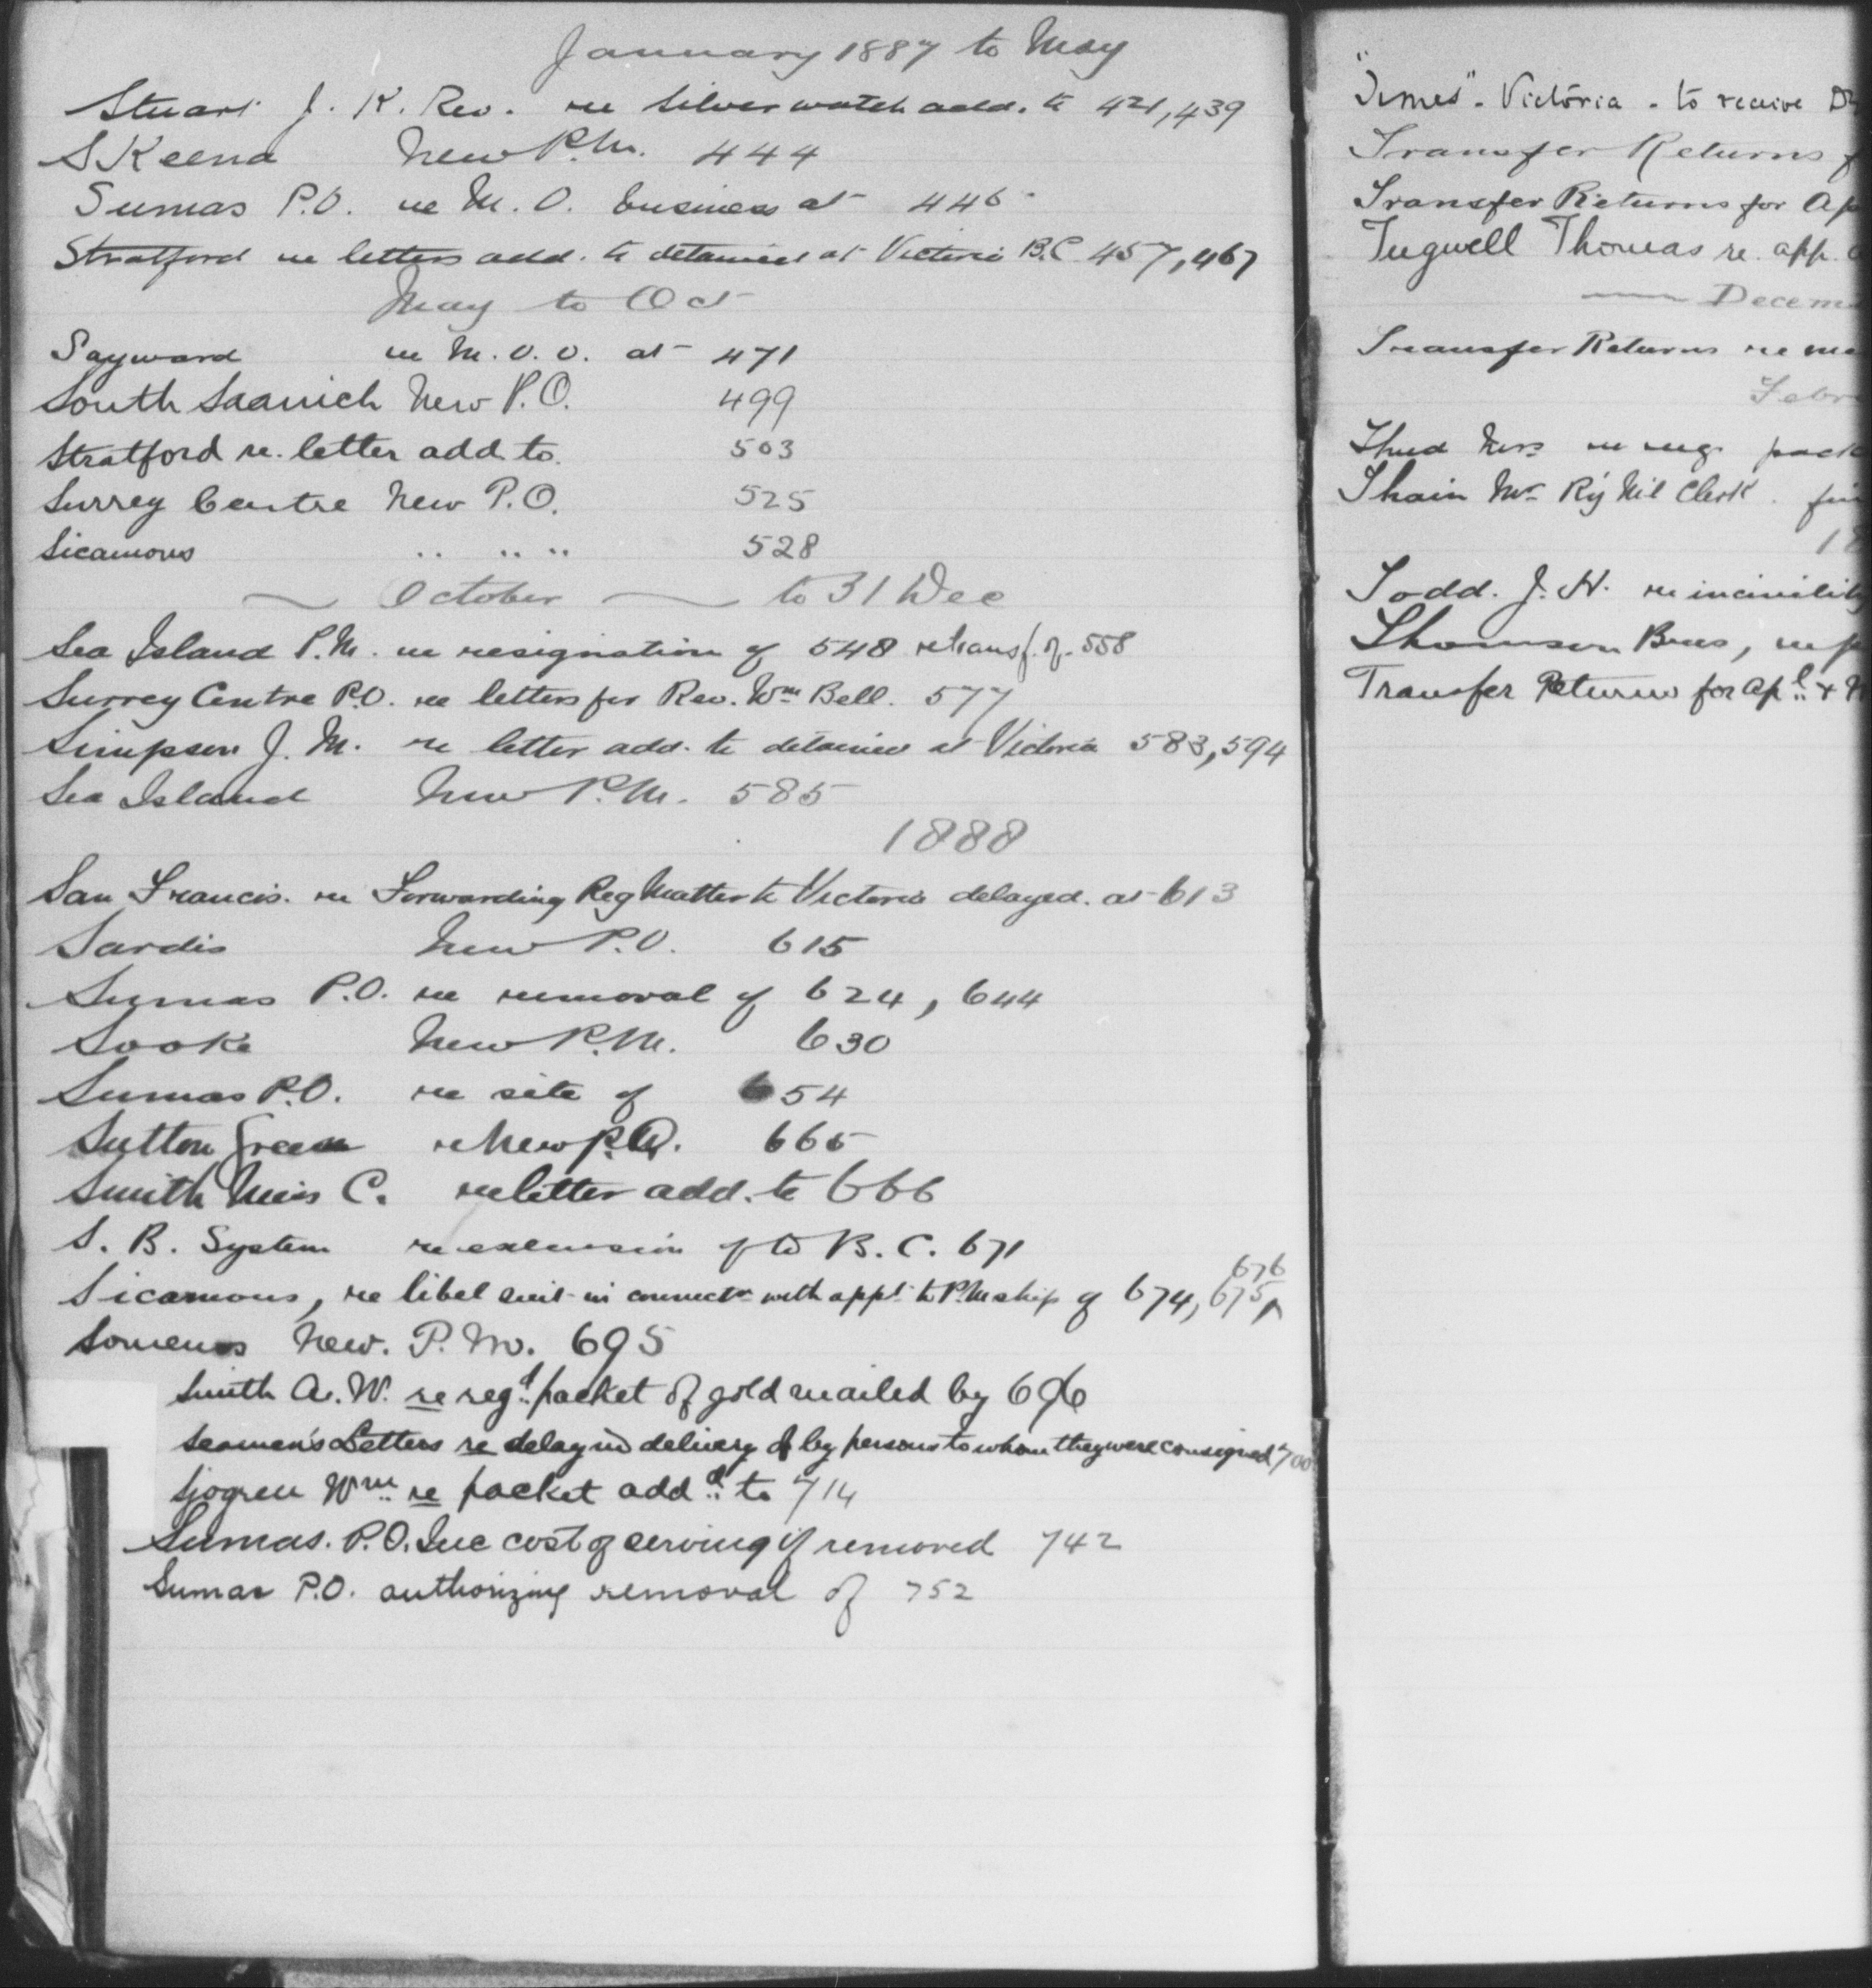 January 1887 to May
Stuart J. K. Rev. re Silver watch add. to 421, 439
SKeena New P.M. 444
Sumas P.O. re M. O. business at 446
Stratford re letters add. to detained at Victoria B.C 457, 467
May to Oct
Sayward re M. O. O. at 471
South Saanich New P.O. 499
Stratford re. letter add to. 503
Surrey Centre New P.O. 525
Sicamous " " " 528
October to 31 Dec
Sea Island P.M. re resignation of 548 re transf. of. 558
Surrey Centre P.O. re letters for Rev. Wm Bell. 577
Simpson J. M. re letter add. to detained at Victoria 583, 594
Sea Island New P.M. 585
1888
San Francis. re Forwarding Reg Matter to Victoria delayed. at 613
Sardis New P.O. 615
Sumas P.O. re removal of 624, 644
Sooke New P.M. 630
Sumas P.O. re site of 654
Sutton Green re New P.O. 665
Smith Miss C. re letter add. to 666
S. B. System re extension of to B. C. 671
Sicamous, re libel suit in connectn with appt. to P.Mship of 674, 675, 676
Somenos New. P. M. 695
Smith A. W. re regd. packet of gold mailed by 696
Seamen's Letters re delay in delivery of by persons to whom they were consigned 700
Sjogren Wm. re packet addd. to 714
Sumas. P.O. Inc cost of serving if removed 742
Sumas P.O. authorizing removal of 752
"Times" - Victoria - to receive
Transfer Returns
Transfer Returns for Ap
Tugwell Thomas re. app.
Decem
Transfer Returns re
Febr
Thud Mrs re reg. pack
Thain Mr Ry Ml Clerk.
18
Todd. J. H. re incivility
Thomson Bros, re
Transfer Returns for Apl. &